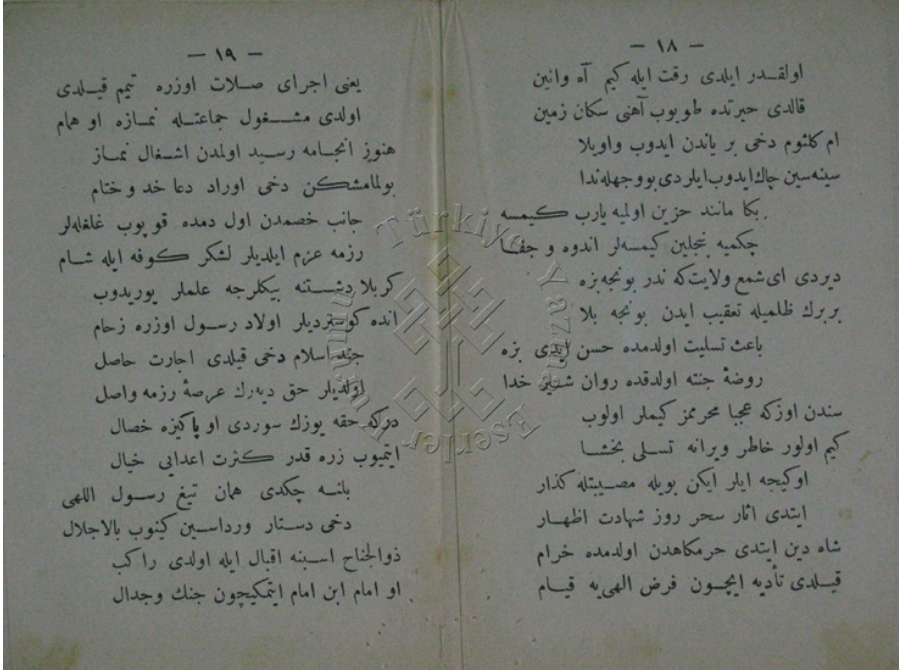 — ١٨ —
اولقدر ايلدى رقت ايله كيم آه وانين
قالدى حيرتده طويوب آهنى سكان زمين
ام كلثوم دخى بر ياندن ايدوب واويلا
سينه‌سين چاك ايدوب ايلردى بووجهله ندا
بكا مانند حزين اولميه يارب كيمسه
چكميه بنجلين كيمسه‌لر اندوه و جفا
ديردى اى شمع ولايت كه ندر بونجه بزه
بربرك ظلميله تعقيب ايدن بونجه بلا
باعث تسليت اولدمده حسن ايدى بزه
روضهٔ جنته اولدقده روان شير خدا
سندن اوزكه عجبا محرممز كيملر اولوب
كيم اولور خاطر ويرانه تسلى بخشا
اوكيجه ايلر ايكن بويله مصيبتله كذار
ايتدى اثار سحر روز شهادت اظهار
شاه دين ايتدى حرمكاهدن اولدمده خرام
قيلدى تأديه ايچون فرض الهى‌يه قيام
— ١٩ —
يعنى اجراى صلات اوزره تيمم قيلدى
اولدى مشغول جماعتله نمازه او همام
هنوز انجامه رسيد اولمدن اشغال نماز
بولمامشكن دخى اوراد دعا خد و ختام
جانب خصمدن اول دمده قوپوب غلغله‌لر
رزمه عزم ايلديلر لشكر كوفه ايله شام
كربلا دشتنه بيكلرجه علملر يوريدوب
انده كوستر‌ديلر اولاد رسول اوزره زحام
جند اسلام دخى قيلدى اجارت حاصل
اولديلر حق ديه‌رك عرصهٔ رزمه واصل
دركه حقه يوزك سوردى او پاكيزه خصال
ايتميوب زره قدر كثرت اعدايى خيال
باننه چكدى همان تيغ رسول اللهى
دخى دستار ورداسين كينوب بالاجلال
ذوالجناح اسبنه اقبال ايله اولدى راكب
او امام ابن امام ايتمكيچون جنك وجدال
Türkiye Yazma Eserler